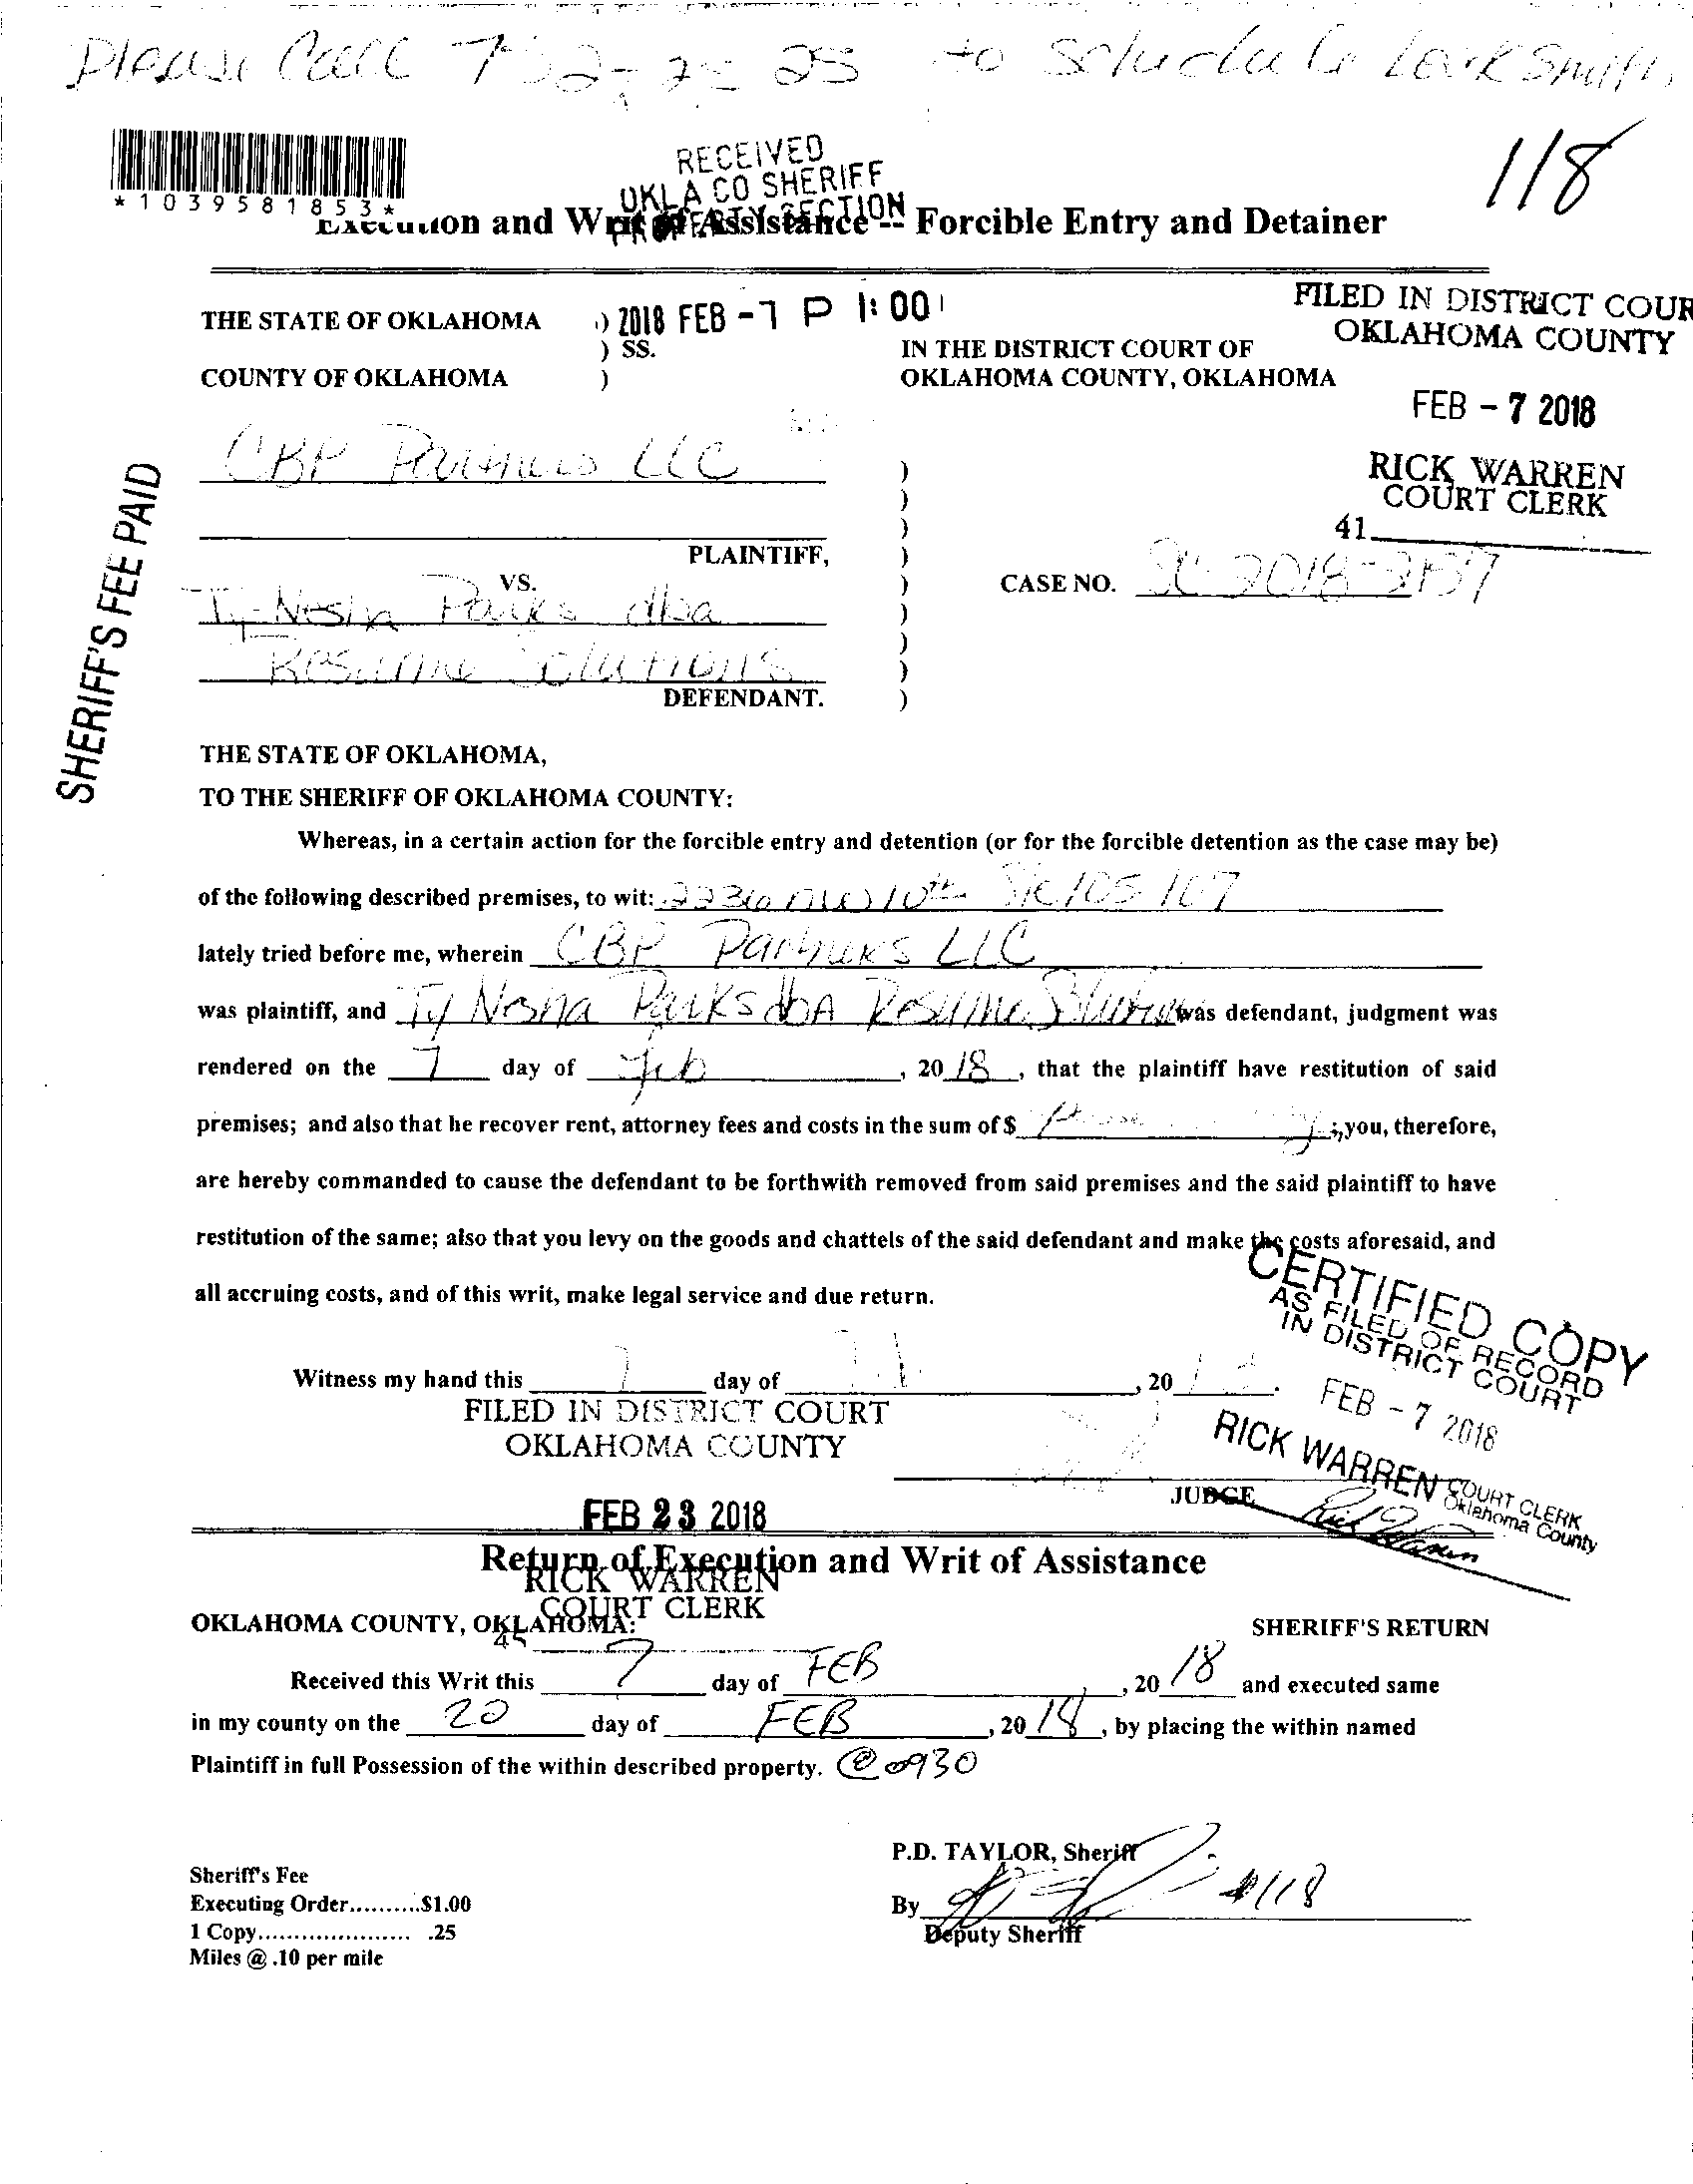 Please Call to Schedule Locksmith
118
*1039581853*
RECEIVED
OKLA CO SHERIFF
PROPERTY SECTION
Execution and Writ of Assistance -- Forcible Entry and Detainer
THE STATE OF OKLAHOMA ) 2018 FEB -7 P 1:00
) SS.
COUNTY OF OKLAHOMA )
IN THE DISTRICT COURT OF
OKLAHOMA COUNTY, OKLAHOMA
FILED IN DISTRICT COUR
OKLAHOMA COUNTY
FEB - 7 2018
RICK WARREN
COURT CLERK
41
SHERIFF'S FEE PAID
CBP Partners LLC
PLAINTIFF,
VS.
CASE NO.
Ty-Nesha Parks dba
Resume Solutions
DEFENDANT.
THE STATE OF OKLAHOMA,
TO THE SHERIFF OF OKLAHOMA COUNTY:
Whereas, in a certain action for the forcible entry and detention (or for the forcible detention as the case may be)
of the following described premises, to wit: 2236 NW 10th Ste 105 107
lately tried before me, wherein CBP Partners LLC
was plaintiff, and Ty Nesha Parks dba Resume Solutions was defendant, judgment was
rendered on the 7 day of Feb , 2018 , that the plaintiff have restitution of said
premises; and also that he recover rent, attorney fees and costs in the sum of $ ; you, therefore,
are hereby commanded to cause the defendant to be forthwith removed from said premises and the said plaintiff to have
restitution of the same; also that you levy on the goods and chattels of the said defendant and make the costs aforesaid, and
all accruing costs, and of this writ, make legal service and due return.
Witness my hand this 7 day of , 20
CERTIFIED COPY
AS FILED OF RECORD
IN DISTRICT COURT
FEB - 7 2018
RICK WARREN COURT CLERK
Oklahoma County
JUDGE
FILED IN DISTRICT COURT
OKLAHOMA COUNTY
FEB 23 2018
RICK WARREN
COURT CLERK
45
Return of Execution and Writ of Assistance
OKLAHOMA COUNTY, OKLAHOMA:
SHERIFF'S RETURN
Received this Writ this 7 day of FEB , 20 18 and executed same
in my county on the 20 day of FEB , 20 18 , by placing the within named
Plaintiff in full Possession of the within described property. @ 0930
P.D. TAYLOR, Sheriff
By #118
Deputy Sheriff
Sheriff's Fee
Executing Order..........$1.00
1 Copy..................... .25
Miles @ .10 per mile